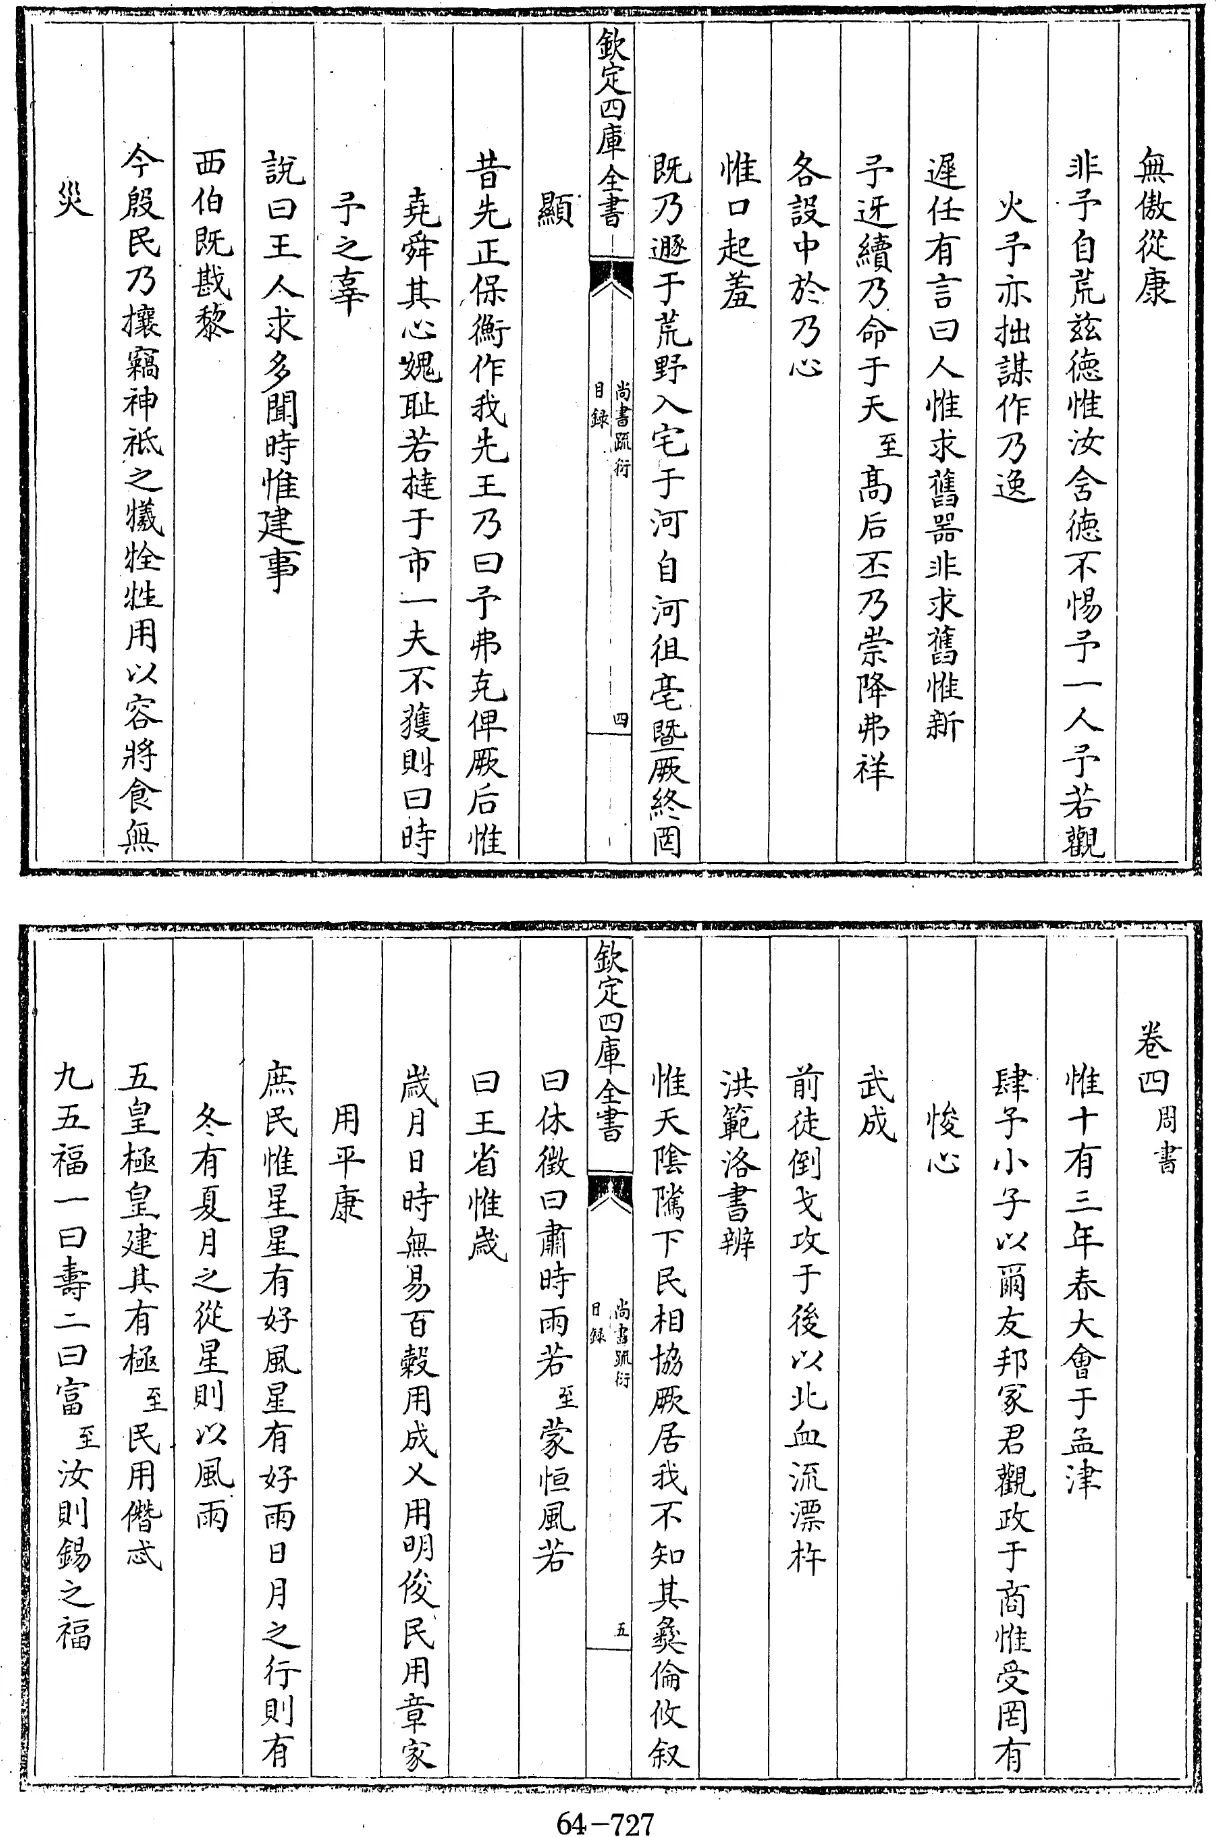 無傲從康
非予自荒茲德惟汝舍德不惕予一人予若觀
火予亦拙謀作乃逸
遲任有言曰人惟求舊器非求舊惟新
予迓續乃命于天至高后丕乃崇降弗祥
各設中於乃心
惟口起羞
既乃遯于荒野入宅于河自河徂亳暨厥終罔
欽定四庫全書
尚書疏衍
目録
四
顯
昔先正保衡作我先王乃曰予弗克俾厥后惟
堯舜其心媿耻若撻于市一夫不獲則曰時
予之辜
說曰王人求多聞時惟建事
西伯既戡黎
今殷民乃攘竊神祗之犧牷牲用以容將食無
災
卷四周書
惟十有三年春大會于孟津
肆予小子以爾友邦冢君觀政于商惟受罔有
悛心
武成
前徒倒戈攻于後以北血流漂杵
洪範洛書辨
惟天陰隲下民相協厥居我不知其彝倫攸叙
欽定四庫全書
尚書疏衍
目録
五
曰休徵曰肅時雨若至蒙恒風若
曰王省惟歲
歲月日時無易百穀用成乂用明俊民用章家
用平康
庶民惟星星有好風星有好雨日月之行則有
冬有夏月之從星則以風雨
五皇極皇建其有極至民用僭忒
九五福一曰壽二曰富至汝則錫之福
64-727